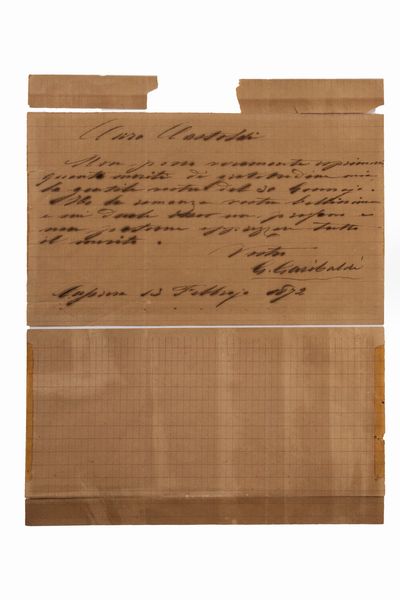 Caro Castoldi
Non posso veramente esprimere
quanto merita di gratitudine
la gentile vostra del 30
Ho la romanza vostra bellissima
e mi duole un profano e
non poterne apprezzare tutto
il merito.
Vostro
G. Garibaldi
Caprera 13 Febbrajo 1872